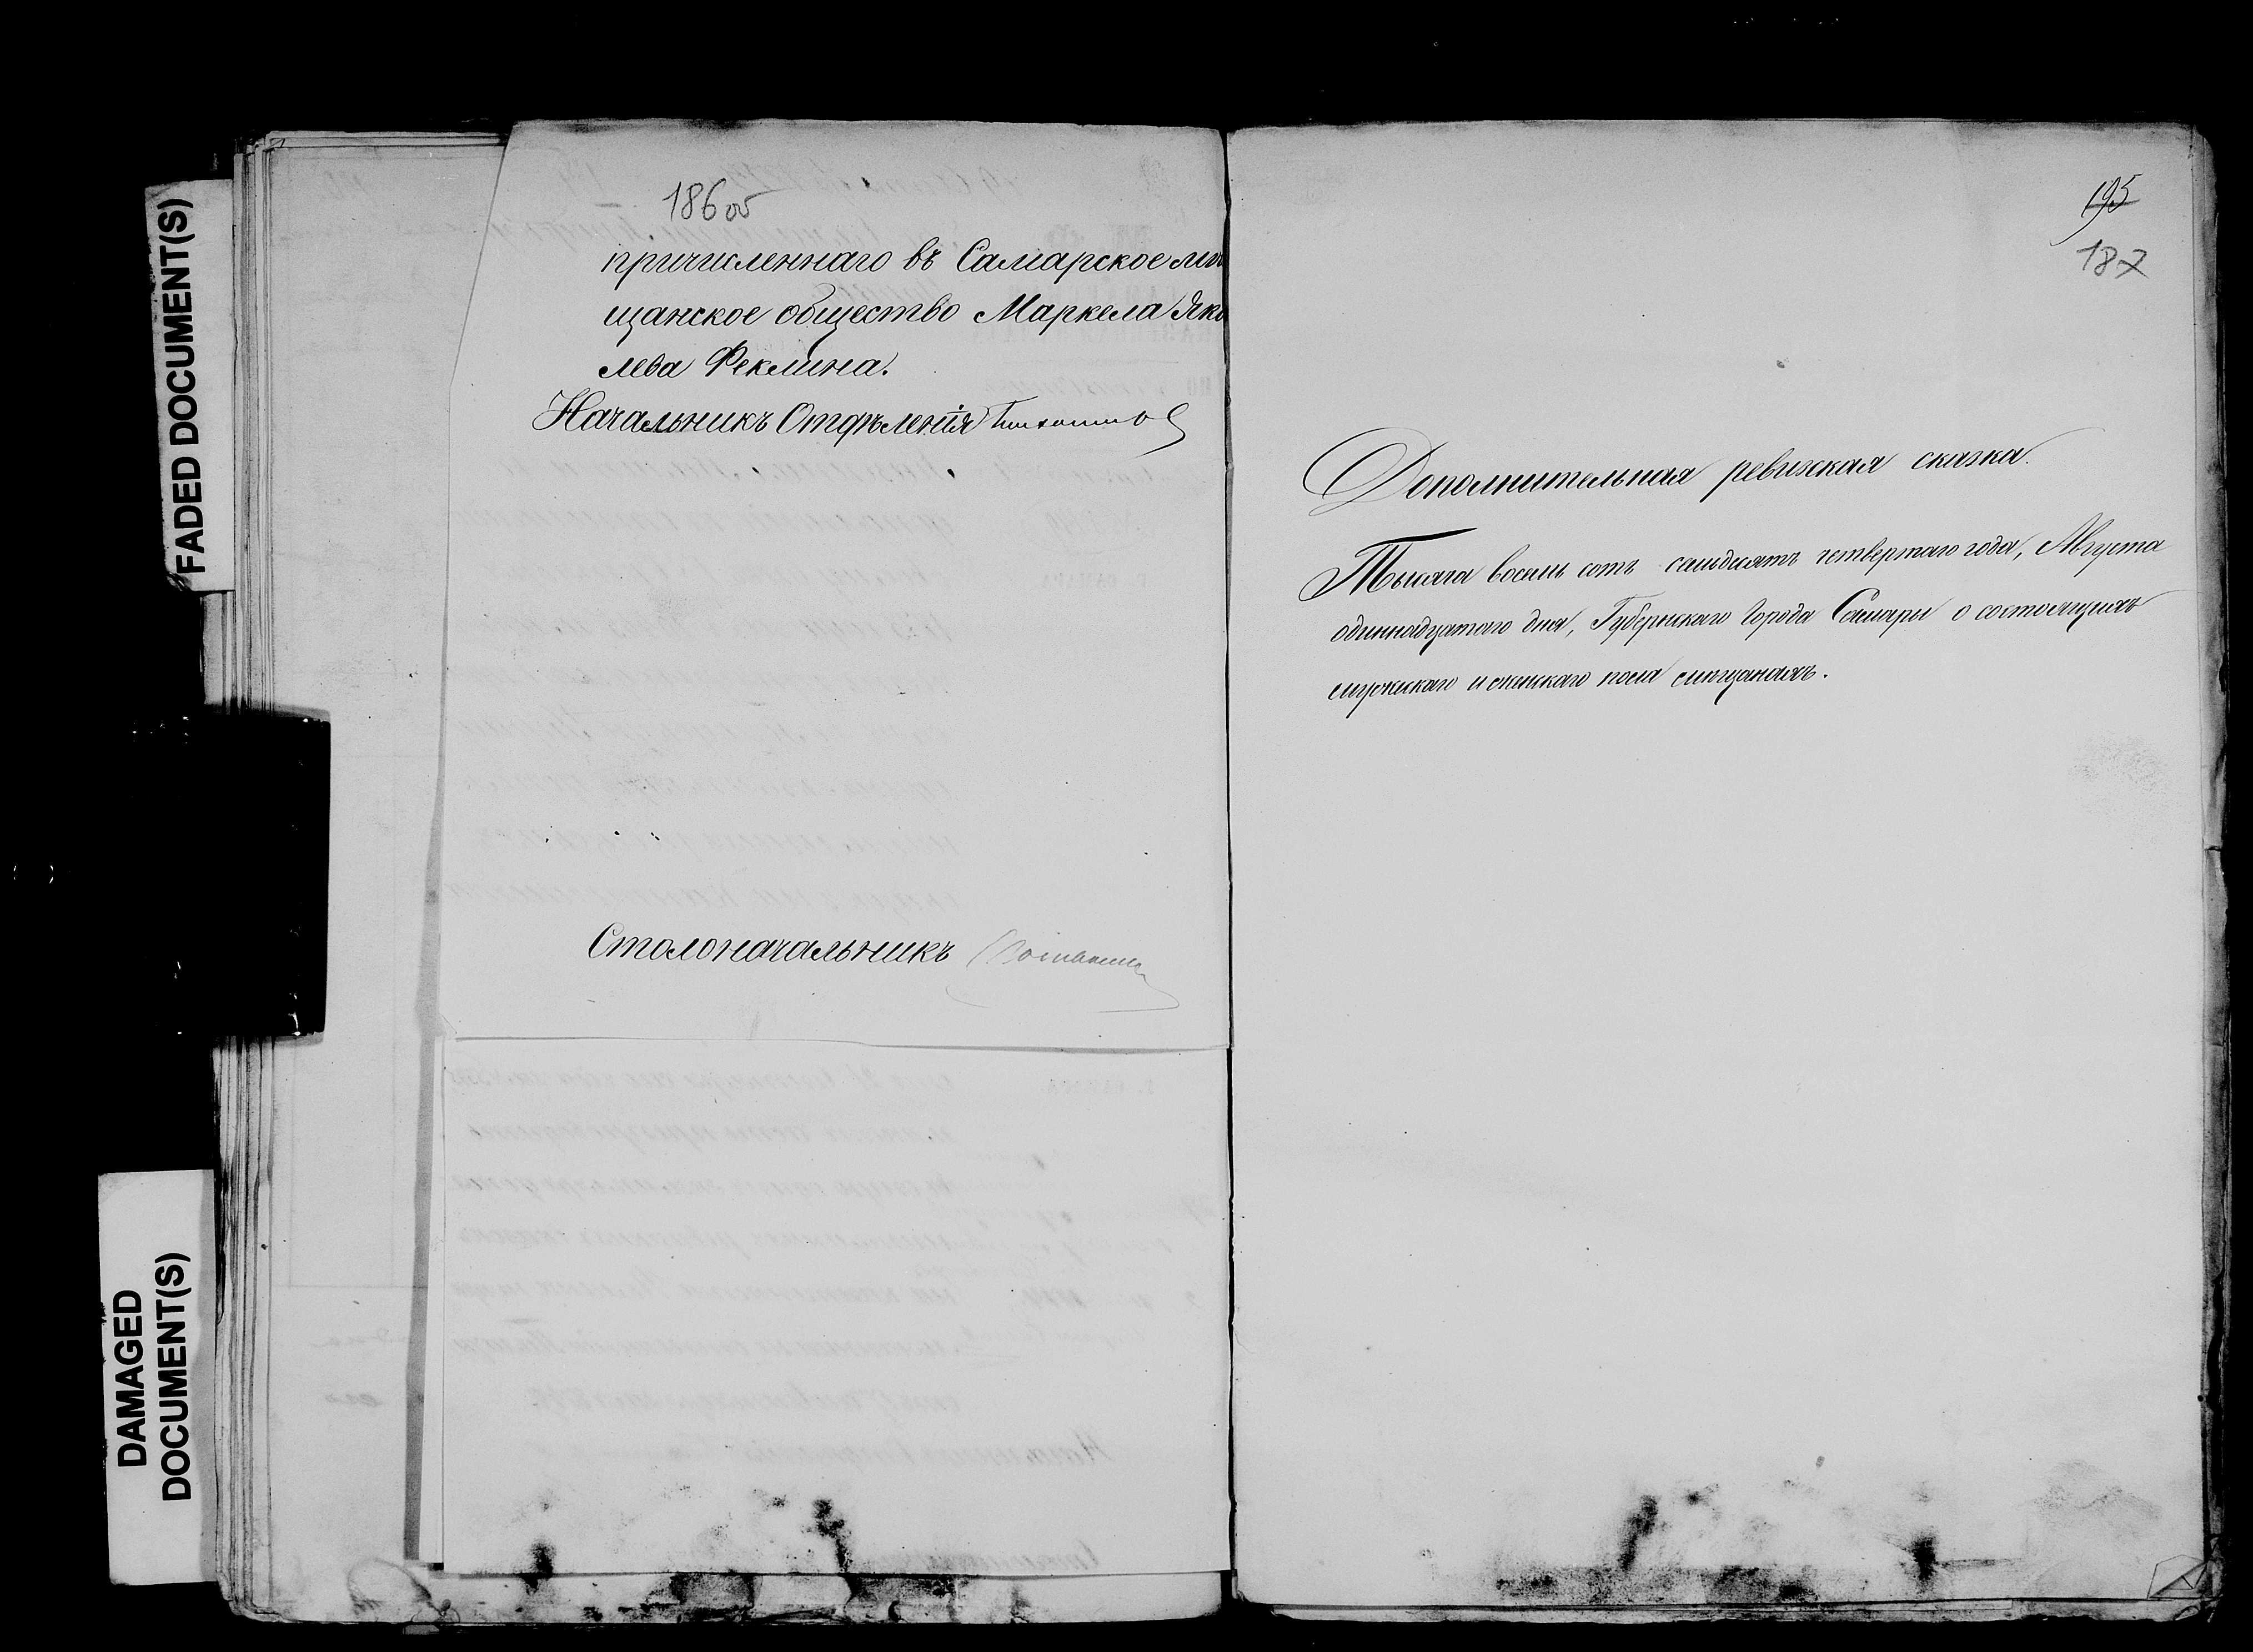 FADED DOCUMENT(S)
DAMAGED
DOCUMENT(S)
186 об
причисленнаго въ Самарское мѣ
щанское общество Маркела Яко
лева Феклина.
Начальникъ Отдѣленія
Столоначальникъ
195
187
Дополнительная ревижская сказка.
Тысяча восемь сотъ семьдисятъ четвертаго года, Августа
одиннадцатаго дня, Губернскаго Города Самары о состоящихъ
мужскаго и женскаго пола мѣщанахъ.